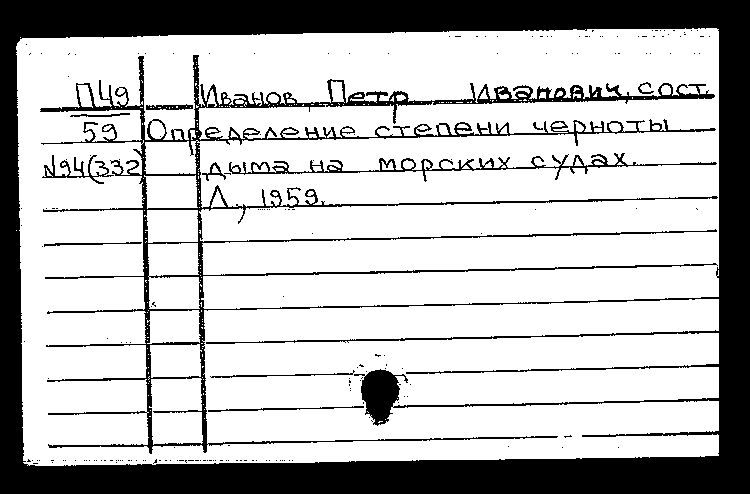 П49 Иванов, Петр Иванович, сост.
59 Определение степени черноты
N94(332) дыма на морских судах.
Л., 1959.